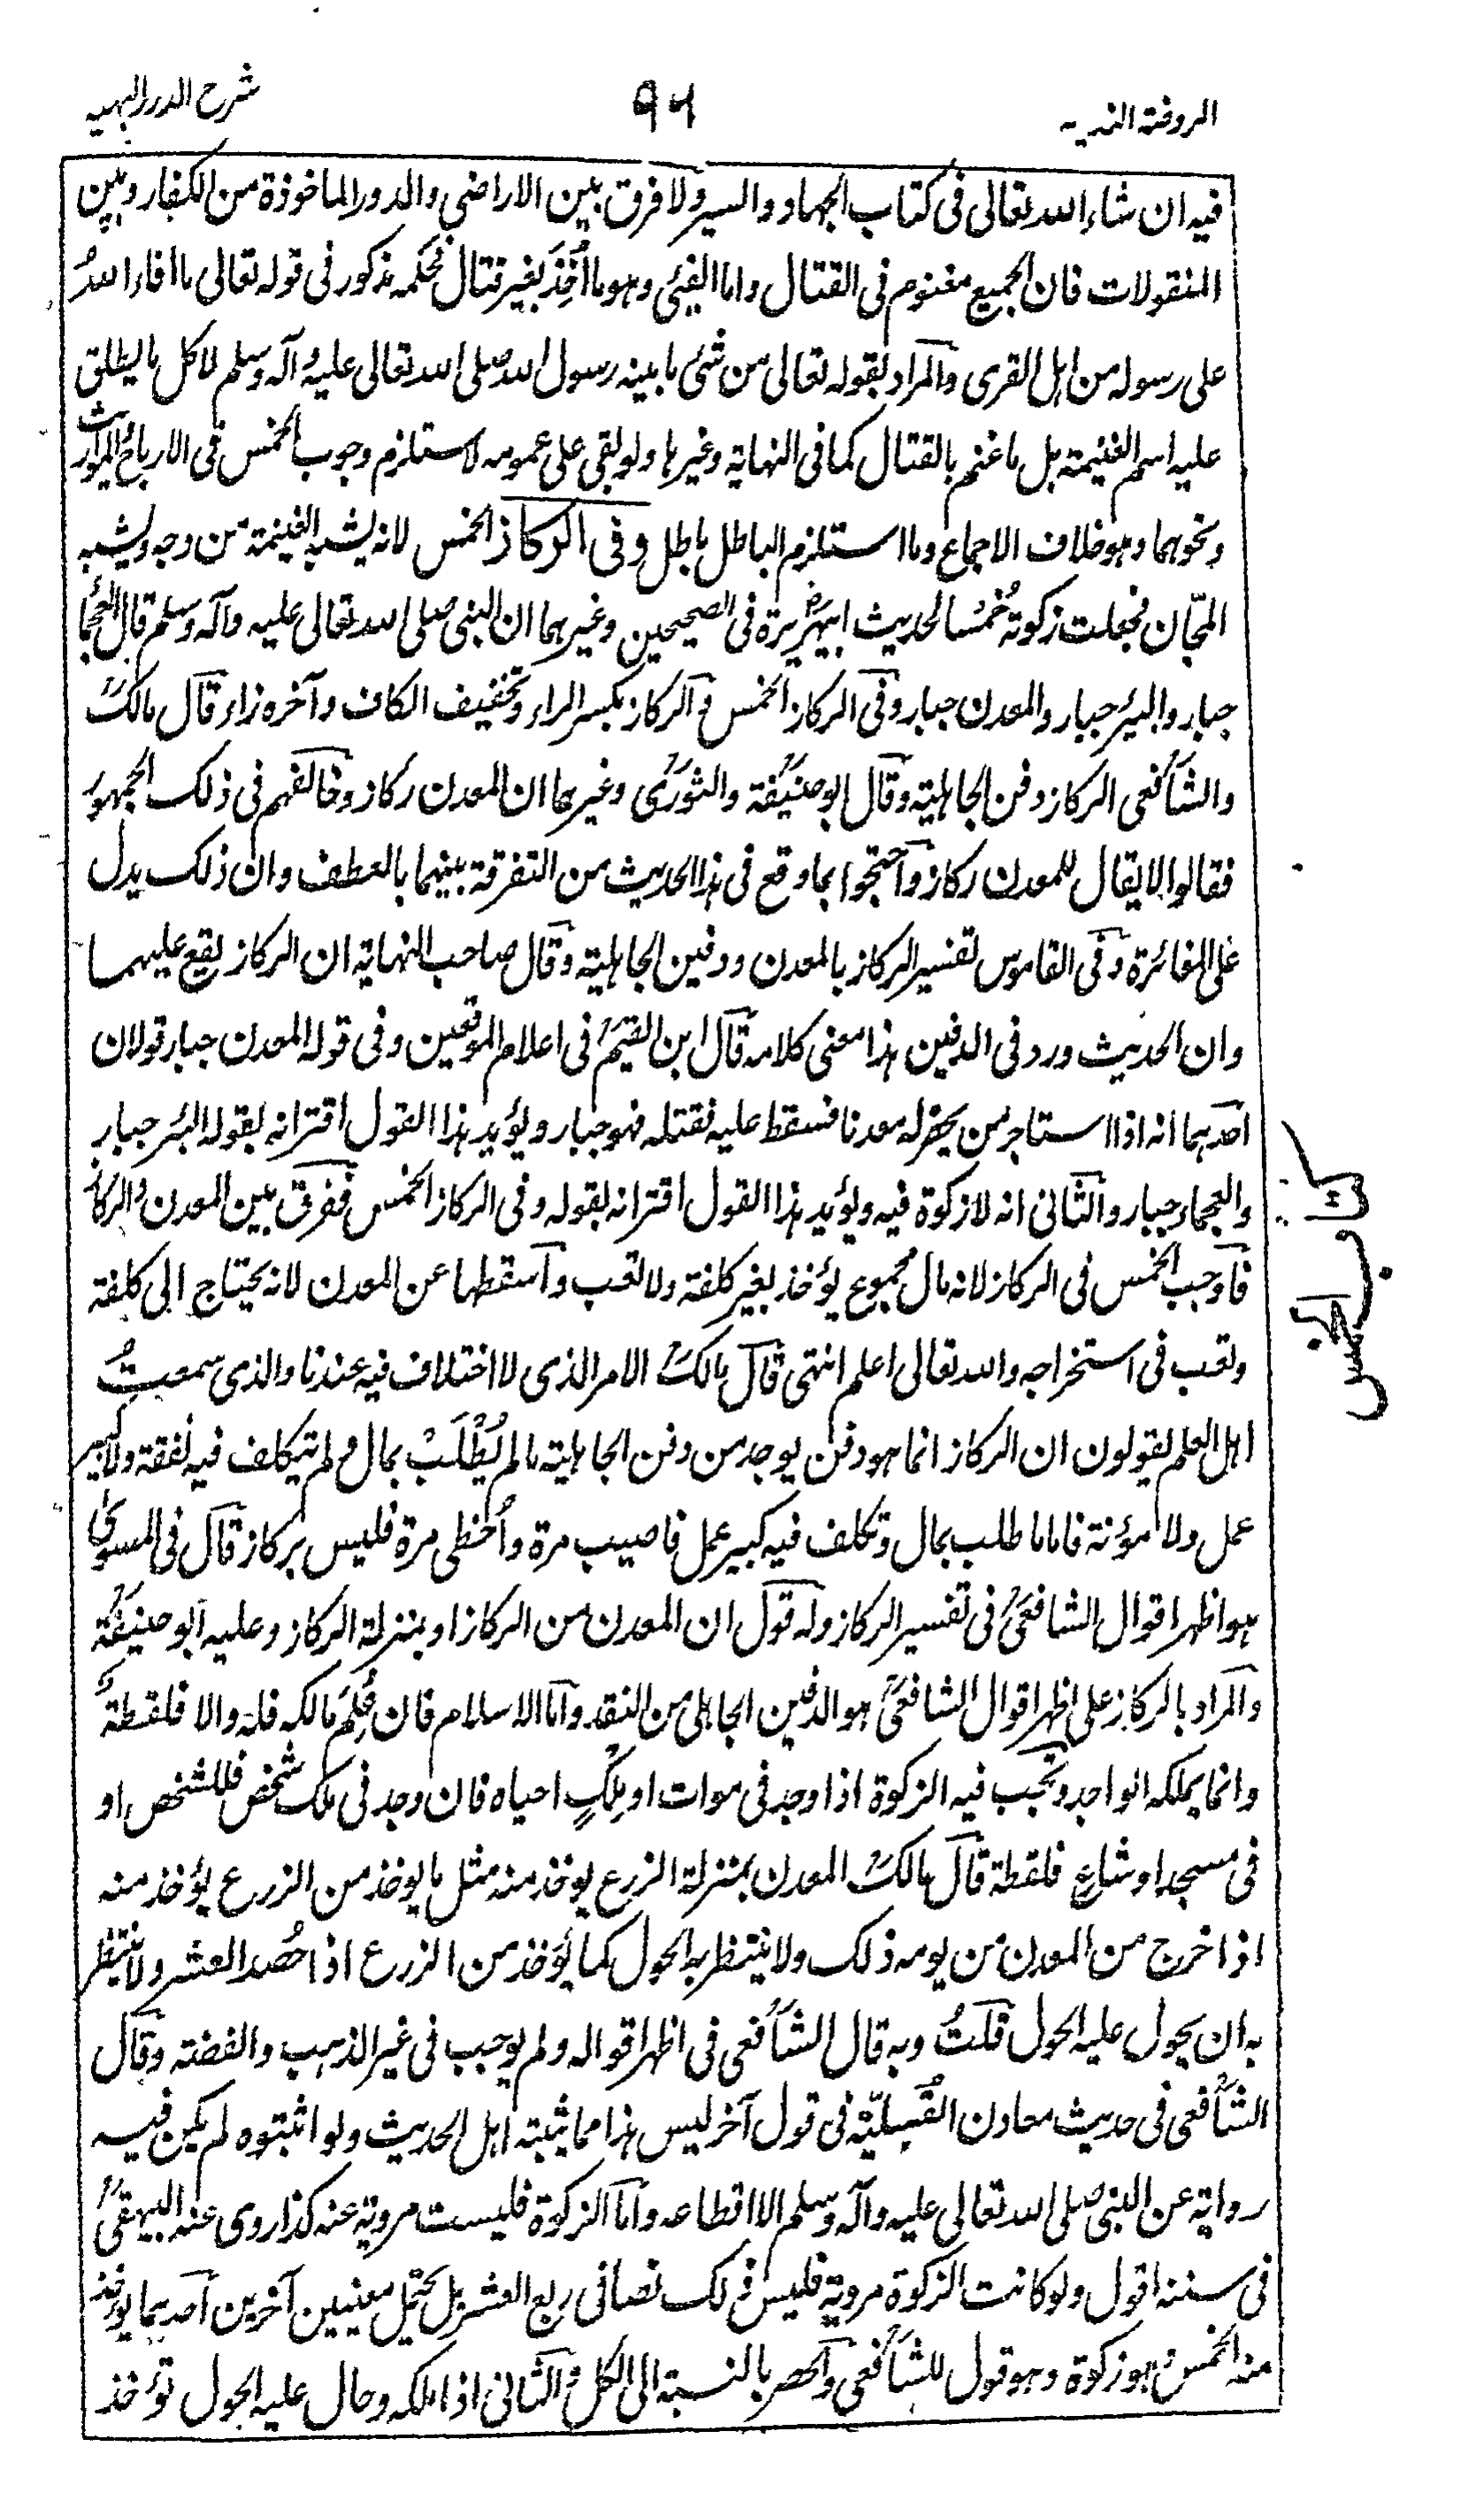 الروضة الندية
٩٦
شرح الدرر البهية
فيه ان شاء الله تعالى فى كتاب الجهاد والسير ولا فرق بين الاراضي والدور الماخوذة من الكفار وبين
المنقولات فان الجميع مغنوم فى القتال واما الفيئ وهو ما اُخِذَ بغير قتال فحكمه مذكور فى قوله تعالى ما افاء اللهُ
على رسوله من اهل القرى والمراد بقوله تعالى من شئ ما بينه رسول الله صلى الله تعالى عليه وآله وسلم لا كل ما يطلق
عليه اسم الغنيمة بل ما غنم بالقتال كما فى النهاية وغيرها ولو بقى على عمومه لاستلزم وجوب الخمس فى الارباح والمواريث
ونحوهما وهو خلاف الاجماع وما استلزم الباطل باطل وفى الركاز الخمس لانه يشبه الغنيمة من وجه ويشبه
المجّان فجعلت زكوته خُمْسًا لحديث ابيهريرة فى الصحيحين وغيرهما ان النبى صلى الله تعالى عليه وآله وسلم قال العجما
جبار والبير جبار والمعدن جبار وفى الركاز الخمس والركاز بكسر الراء وتخفيف الكاف وآخره زاء قال مالك
والشافعى الركاز دفن الجاهلية وقال ابوحنيفة والثورى وغيرهما ان المعدن ركاز وخالفهم فى ذلك الجمهور
فقالوا لا يقال للمعدن ركاز واحتجوا بما وقع فى هذا الحديث من التفرقة بينهما بالعطف وان ذلك يدل
على المغائرة وفى القاموس تفسير الركاز بالمعدن ودفين الجاهلية وقال صاحب النهاية ان الركاز يقع عليهما
وان الحديث ورد فى الدفين هذا معنى كلامه قال ابن القيم فى اعلام الموقعين وفى قوله المعدن جبار قولان
احدهما انه اذا استاجر من يحفر له معدنا فسقط عليه فقتله فهو جبار ويؤيد هذا القول اقترانه بقوله البئر جبار
والعجماء جبار والثانى انه لا زكوة فيه ويؤيد هذا القول اقترانه بقوله وفى الركاز الخمس ففرق بين المعدن والركاز
فاوجب الخمس فى الركاز لانه مال مجموع يؤخذ بغير كلفة ولا تعب واسقطها عن المعدن لانه يحتاج الى كلفة
وتعب فى استخراجه والله تعالى اعلم انتهى قال مالك الامر الذى لا اختلاف فيه عندنا والذى سمعتُ
اهل العلم يقولون ان الركاز انما هو دفن يوجد من دفن الجاهلية ما لم يُطْلَبْ بمال ولم يتكلف فيه نفقة ولا كبير
عمل ولا مؤنة فاما ما طلب بمال وتكلف فيه كبير عمل فاصيب مرة واُخطى مرة فليس بركاز قال فى المسوىٰ
هو اظهر اقوال الشافعى فى تفسير الركاز وله قول ان المعدن من الركاز او بمنزلة الركاز وعليه ابوحنيفة
والمراد بالركاز على اظهر اقوال الشافعى هو الدفين الجاهلى من النقد واما الاسلام فان عُلِمَ مالكه فله والا فلقطة
وانما يملكه الواجد وتجب فيه الزكوة اذا وجد فى موات او ملكٍ احياه فان وجد فى ملك شخص فللشخص او
فى مسجد او شارع فلقطة قال مالك المعدن بمنزلة الزرع يوخذ منه مثل ما يوخذ من الزرع يؤخذ منه
اذا خرج من المعدن من يومه ذلك ولا ينتظر به الحول كما يؤخذ من الزرع اذا حُصد العشر ولا ينتظر
به ان يحول عليه الحول قلتُ وبه قال الشافعى فى اظهر اقواله ولم يوجب فى غير الذهب والفضة وقال
الشافعى فى حديث معادن القَبَليّة فى قول آخر ليس هذا مما يثبته اهل الحديث ولو اثبتوه لم يكن فيه
رواية عن النبى صلى الله تعالى عليه وآله وسلم الا اقطاعه واما الزكوة فليست مروية عنه كذا روى عنه البيهقى
فى سننه اقول ولو كانت الزكوة مروية فليس فى ذلك نصا فى ربع العشر بل يحتمل معنيين آخرين احدهما يوخذ
منه الخمس وهو زكوة وهو قول للشافعى والحصر بالنسبة الى الكل والثانى اذا ملكه وحال عليه الحول تؤخذ